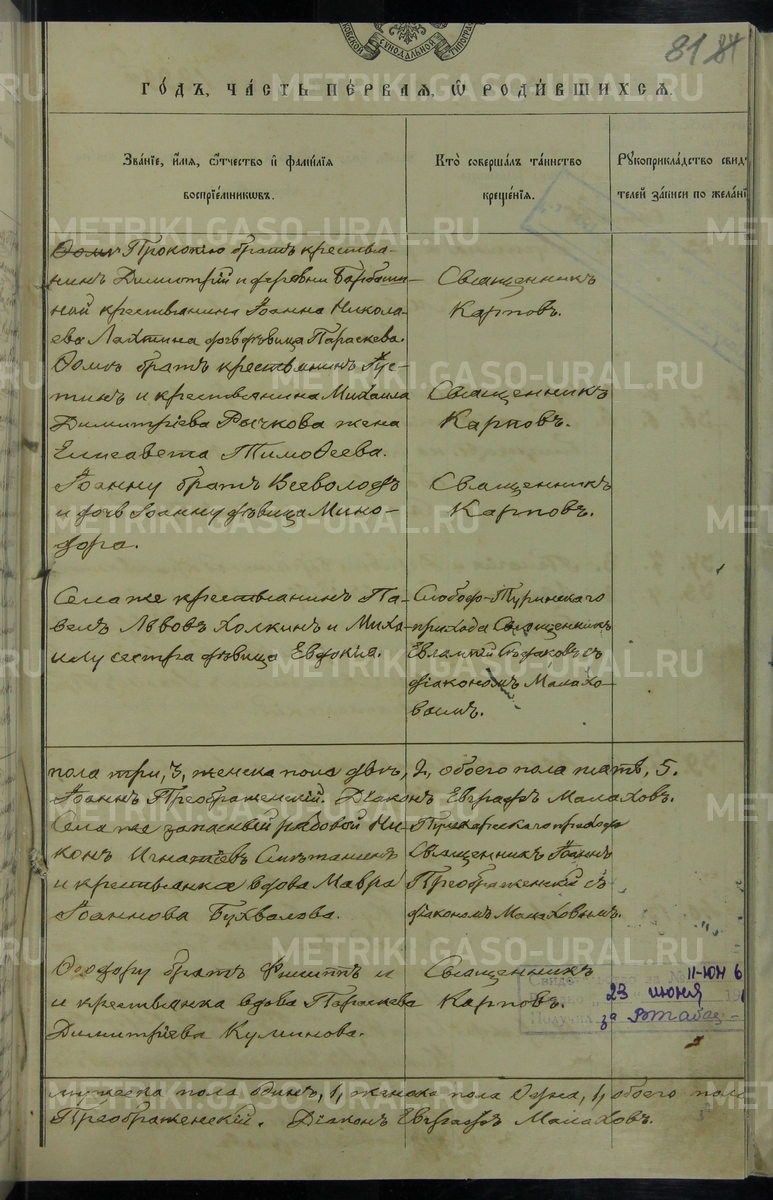 Московской Сѵнодальной Типогр
81 84
Го́дъ, ча́сть пе́рваѧ, ѿ роди́вшихсѧ.
Зва́нїе, и҆́мѧ, ѻ҆́тчество и҆ фами́лїѧ воспрїе́мникѡвъ.
Кто̀ соверша́лъ та́инство креще́нїѧ.
Рꙋкоприкла́дство свидѣ́телей за́писи по жела́нїю
Прокопію братъ крестья-
нинъ Димитрій и деревни
ной крестьянина Іоанна Никола-
ева Лахтина дочь дѣвица Параскева.
Священникъ
Карповъ.
Ѳомѣ братъ крестьянинъ Іус-
тинъ и крестьянина Михаила
Димитріева Рычкова жена
Елисавета Тимоѳеева.
Священникъ
Карповъ.
Іоанну братъ Всеволодъ
и дочь Іоанну дѣвица Мино-
дора.
Священникъ
Карповъ.
Села же крестьянинъ Па-
велъ Львовъ Холкинъ и Миха-
илу сестра дѣвица Евдокія.
Слободо-Туринскаго
прихода Священникъ
Евлампій съ
діакономъ Малахо-
вымъ.
пола три, 3, женска пола двѣ, 2, обоего пола пять, 5.
Іоаннъ Преображенскій. Діаконъ Евграфъ Малаховъ.
Села же запасный рядовой Ни-
конъ Игнатіевъ Смѣтанинъ
и крестьянка вдова Мавра
Іоаннова Бухвалова.
прихода
Священникъ Іоаннъ
Преображенскій съ
діакономъ Малаховымъ.
Ѳеодору братъ Филиппъ и
и крестьянка вдова Параскева
Димитріева Куминова.
Священникъ
Карповъ.
11-ЮН 6
23 июня
за
мужеска пола одинъ, 1, женска пола одна, 1, обоего пола
Преображенскій. Діаконъ Евграфъ Малаховъ.
METRIKI.GASO-URAL.RU